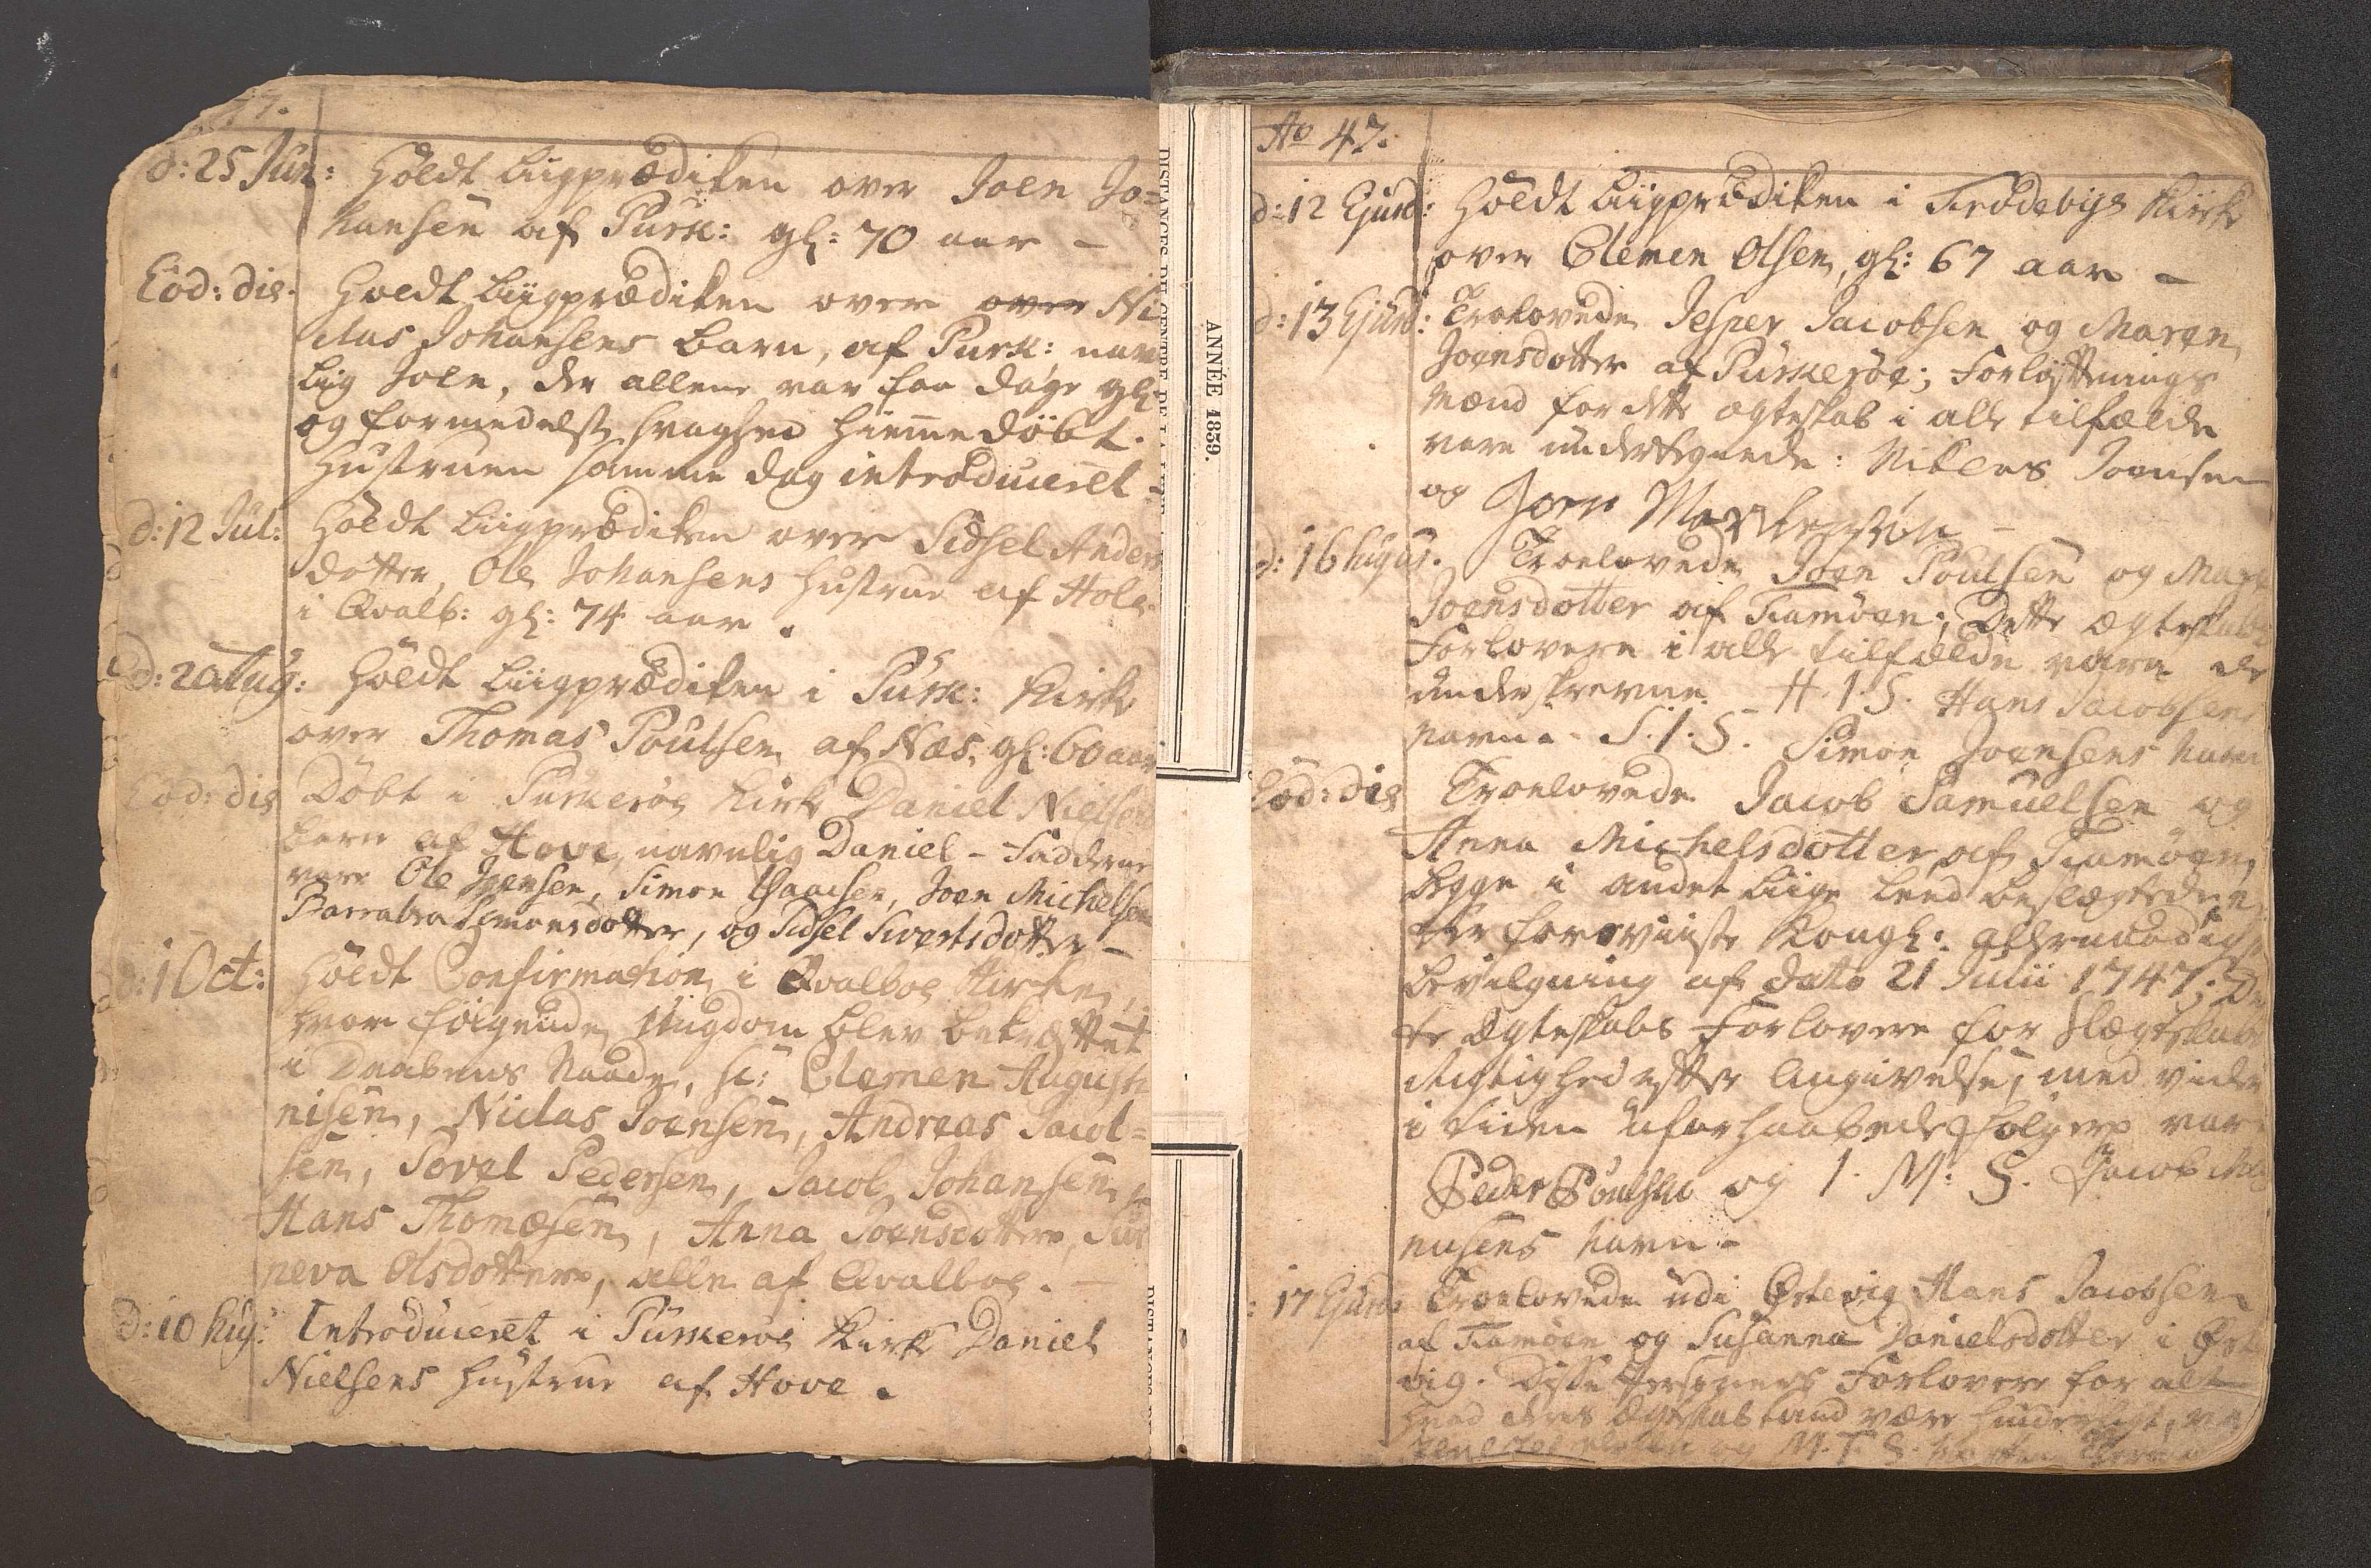 47.
d: 25 Jun: Holdt Liigprædiken over Joen Jo-
hansen af Pursk: gl: 70 aar –
Eod: die. Holdt Liigprædiken over over Ni
clas Johansens Barn, af Pursk: nav
lig Joen, der allene var faa dage gl:
og formedelst svaghed hiemmedöbt.
Hustruen samme dag introduceret –
d: 12 Jul: Holdt Liigprædiken over Sidsel Anders
dotter, Ole Johansens Hustrue af Hole
i Qvalb: gl: 74 aar.
d: 20 Aug: Holdt Liigprædiken i Pursk: Kirke
over Thomas Poulsen af Næs, gl: 60 aar
Eod: die Döbt i Purkeröe Kirke Daniel Nielsens
barn af Hove, navnlig Daniel – Fadderne
vare Ole Joensen, Simon Isaacsen, Joen Michelsen
Barrabra Simonsdotter, og Sidsel Sivertsdotter –
d: 1 Oct: Holdt Confirmation i Qvalboe Kirke,
hvor følgende Ungdom blev bekræfftet
i Daabens Naade, sc: Clemen Augusti
nisen, Niclas Joensen, Andreas Jacob=
sen, Povel Pedersen, Jacob Johansen,
Hans Thomæsen, Anna Joensdotter, Sun
neva Olsdotter, alle af Qvalboe. –
d: 10 huj: Introduceret i Purkeröe Kirke Daniel
Nielsens Hustrue af Hove.
DISTANCES DE CENTRE DE LA
ANNÉE 1839.
Ao 47.
d: 12 Ejusd: Holdt Liigprædiken i Frodebye Kirke
over Clemen Olsen, gl: 67 aar –
d: 13 Ejusd: Trolovede Jesper Jacobsen og Maren
Joensdotter af Purkeröe; Forløfftnings
Mænd for dette ægteskab i alle tilfælde
vare undertegnede: Niklas Joensen
og Joen
d: 16 hujus. Troelovede Joen Poulsen og Mar
Joensdotter af Famöen; Dette ægteskabs
Forlovere i alle tilfælde vare de
underskrevne. H. I. S. Hans Jacobsens
navn. S. I. S. Simon Joensens navn
Eod: die Troelovede Jacob Samuelsen og
Anna Michelsdotter af Famöen,
begge i andet liige leed beslægtede
forviiste Kongl: allernaadigste
bevilgning af dato 21 Julii 1747; Det
te ægteskabs Forlovere for Slægtskabs
Rigtighed efter Angivelse, med videre
i tiden uforhaabede følger var
Peder Poulsen og I. M. S. Jacob
nusens navn –
17 Ejusd Troelovede udi Ørdevig Hans Jacobsen
af Famöen og Susanna Danielsdotter i Ørd
vig. Disse Personers Forlovere for alt
hvad deres Ægteskab kand være hinderligt,
og M. T. S.